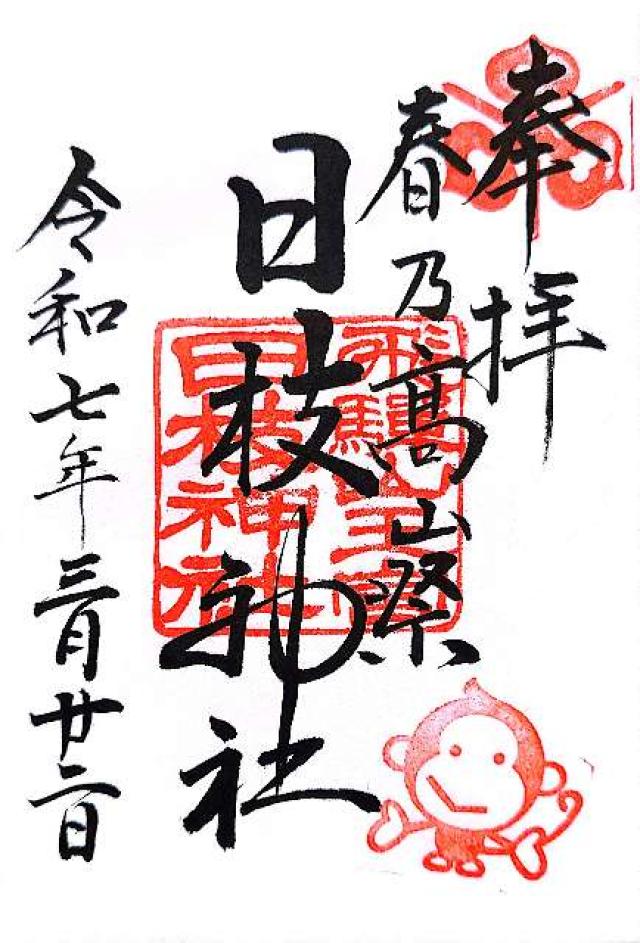 奉拝
春乃高山祭
日枝神社
飛騨山王宮
日枝神社
令和七年三月廿二日